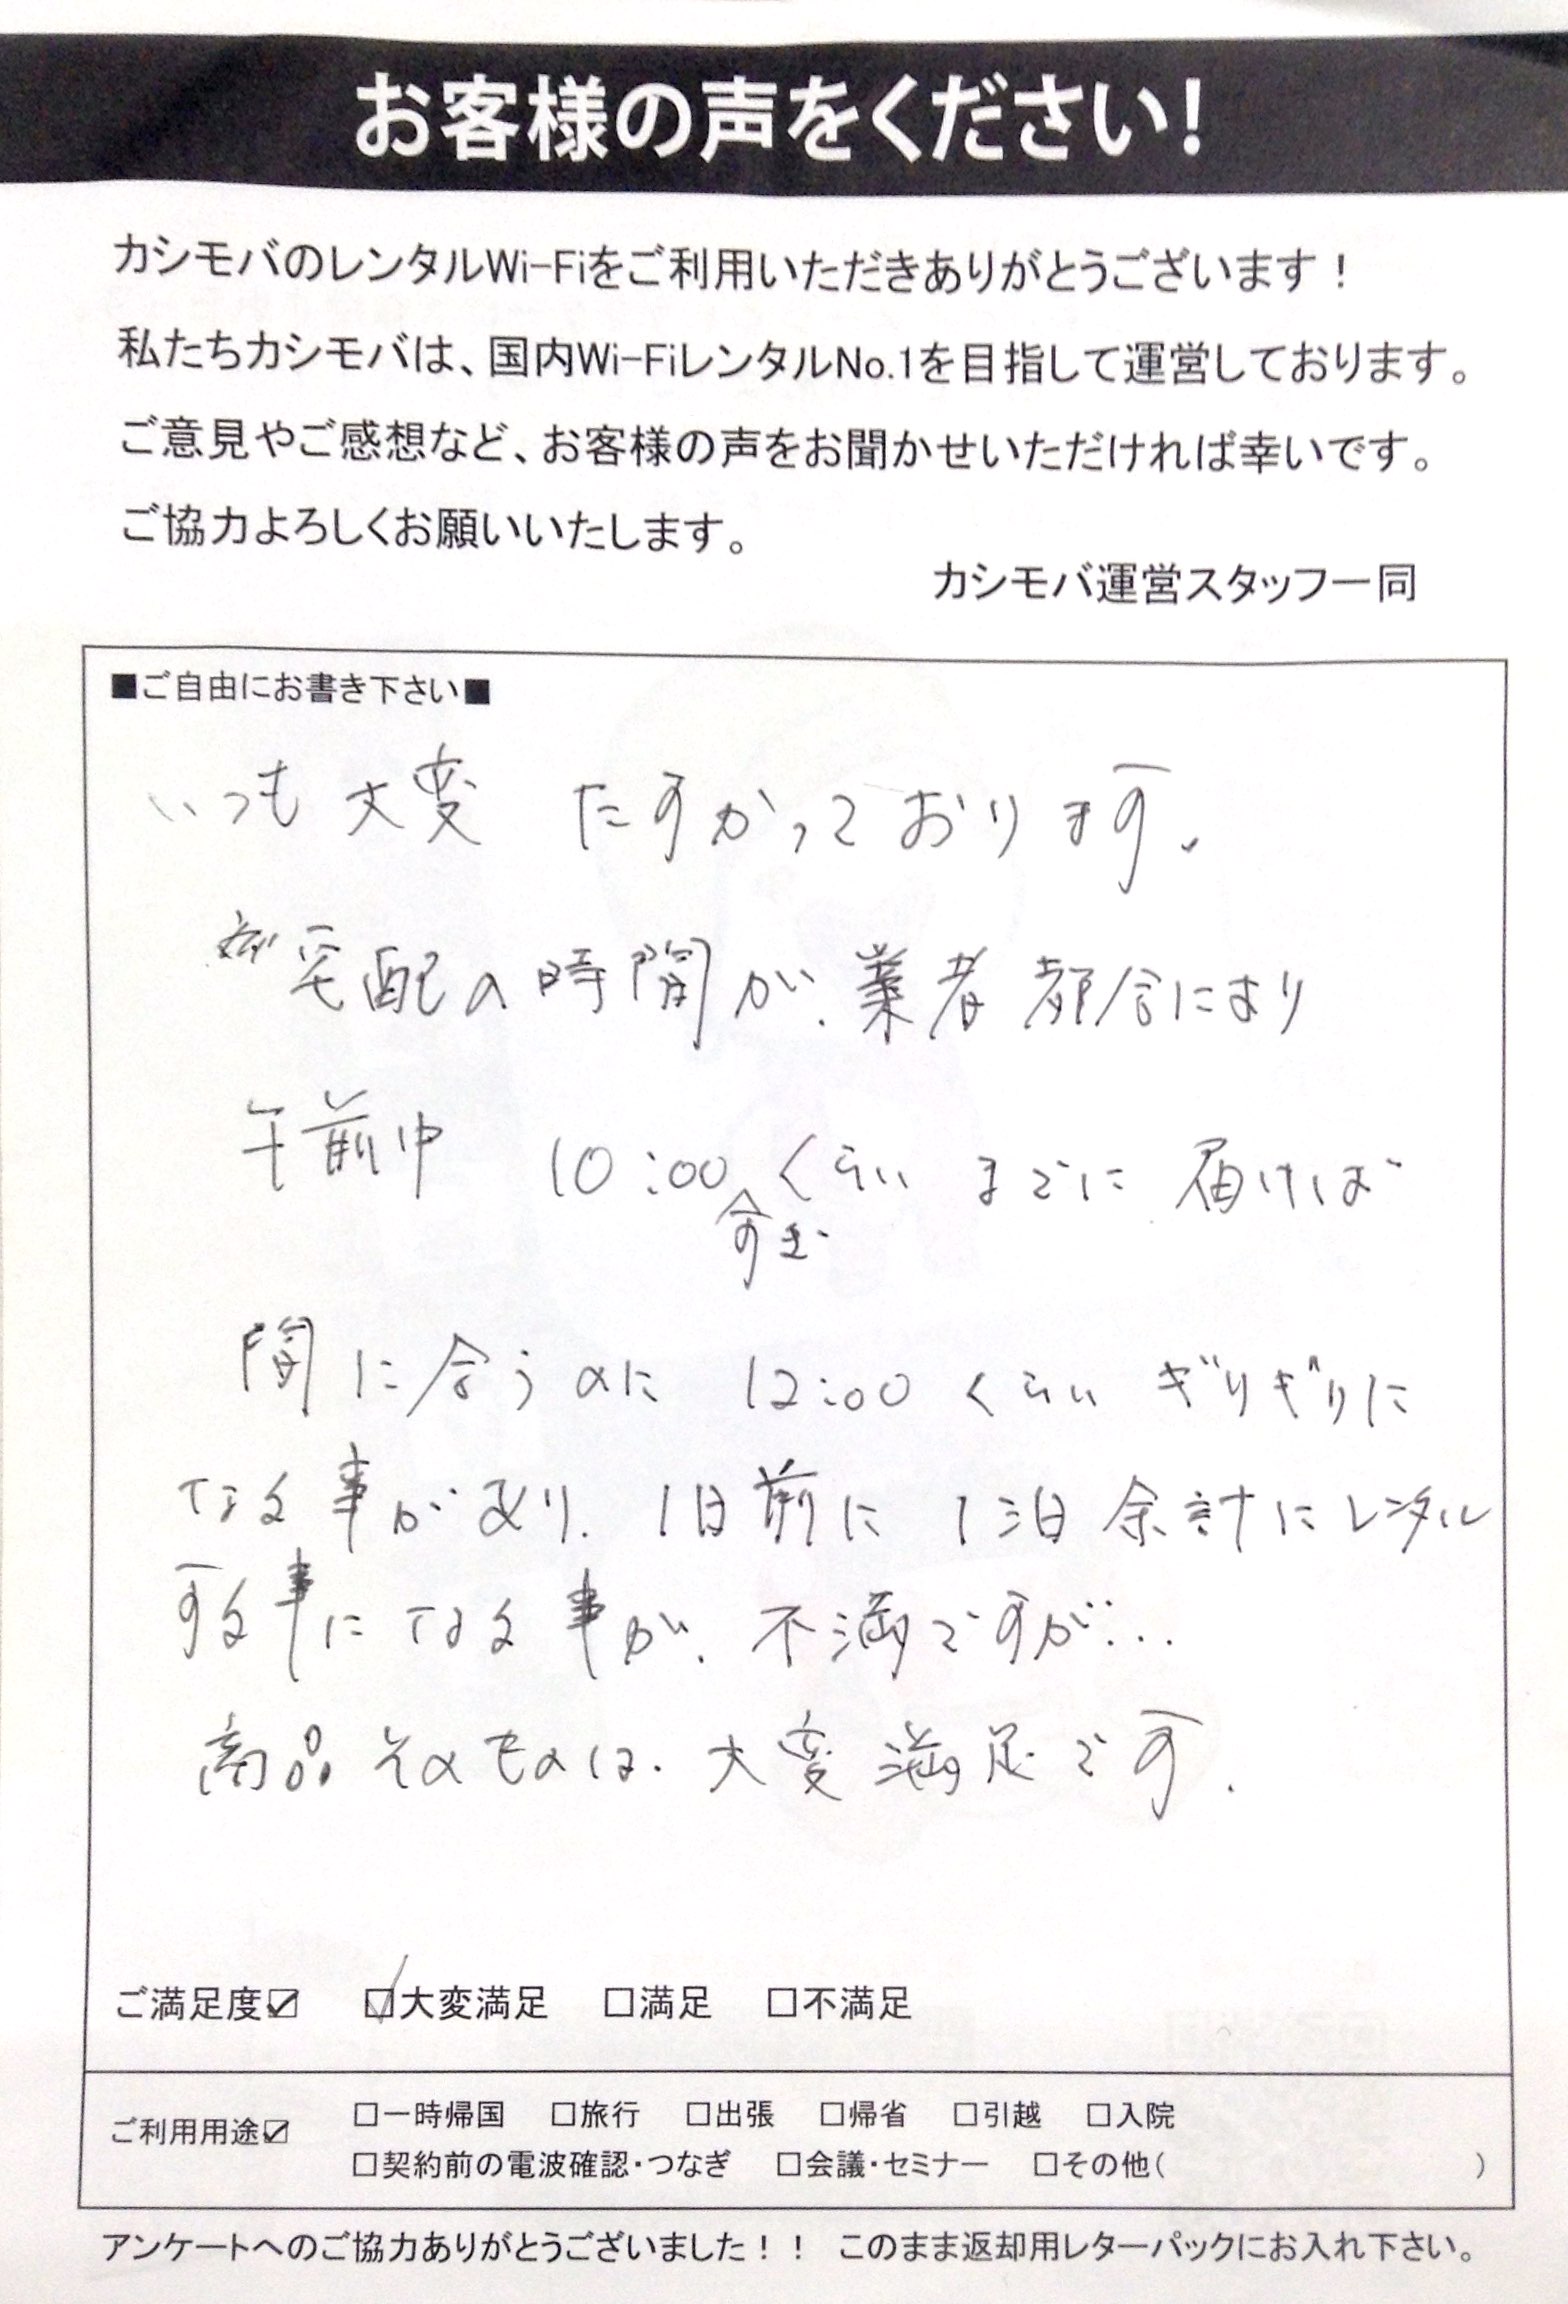 お客様の声をください!
カシモバのレンタルWi-Fiをご利用いただきありがとうございます!
私たちカシモバは、国内Wi-FiレンタルNo.1を目指して運営しております。
ご意見やご感想など、お客様の声をお聞かせいただければ幸いです。
ご協力よろしくお願いいたします。
カシモバ運営スタッフ一同
■ご自由にお書き下さい■
いつも 大変 たすかっております。
宅配の時間が、業者都合により
午前中 10:00くらいまでに届けば
間に合うのに 12:00くらいギリギリに
なる事があり、1日前に1泊余計にレンタル
する事になる事が、不満ですが…
商品そのものは、大変満足です.
ご満足度☑ ☑大変満足 □満足 □不満足
ご利用用途☑ □一時帰国 □旅行 □出張 □帰省 □引越 □入院
□契約前の電波確認・つなぎ □会議・セミナー □その他( )
アンケートへのご協力ありがとうございました!! このまま返却用レターパックにお入れ下さい。